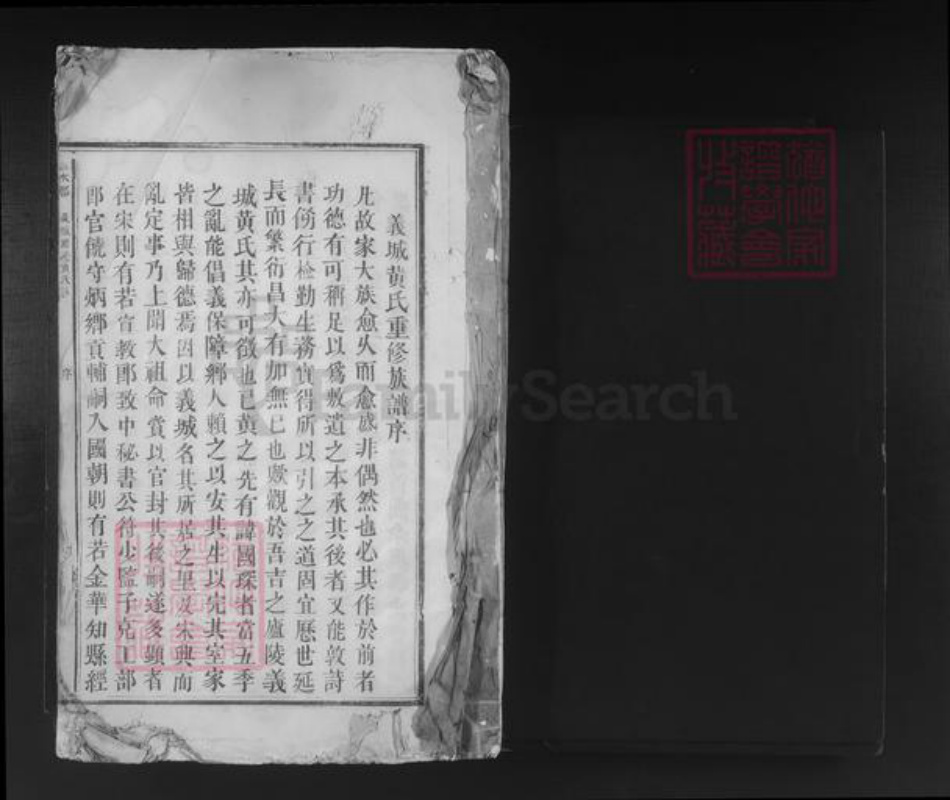 義城黃氏重修族譜序
凡故家大族愈久而愈盛非偶然也必其作於前者
功德有可稱足以爲敷遺之本承其後者又能敦詩
書飭行檢勤生務實得所以引之之道固宜歷世延
長而繁衍昌大有加無已也歟觀於吾吉之廬陵義
城黃氏其亦可徵也已黃之先有諱國琛者當五季
之亂能倡義保障鄉人賴之以安其生以完其室家
皆相與歸德焉因以義城名其所居之里及宋興而
亂定事乃上聞太祖命賞以官封其後嗣遂多顯者
在宋則有若宣教郎致中秘書公符少監子克工部
郎官僥守炳鄉貢輔嗣入國朝則有若金華知縣經
序
FamilySearch